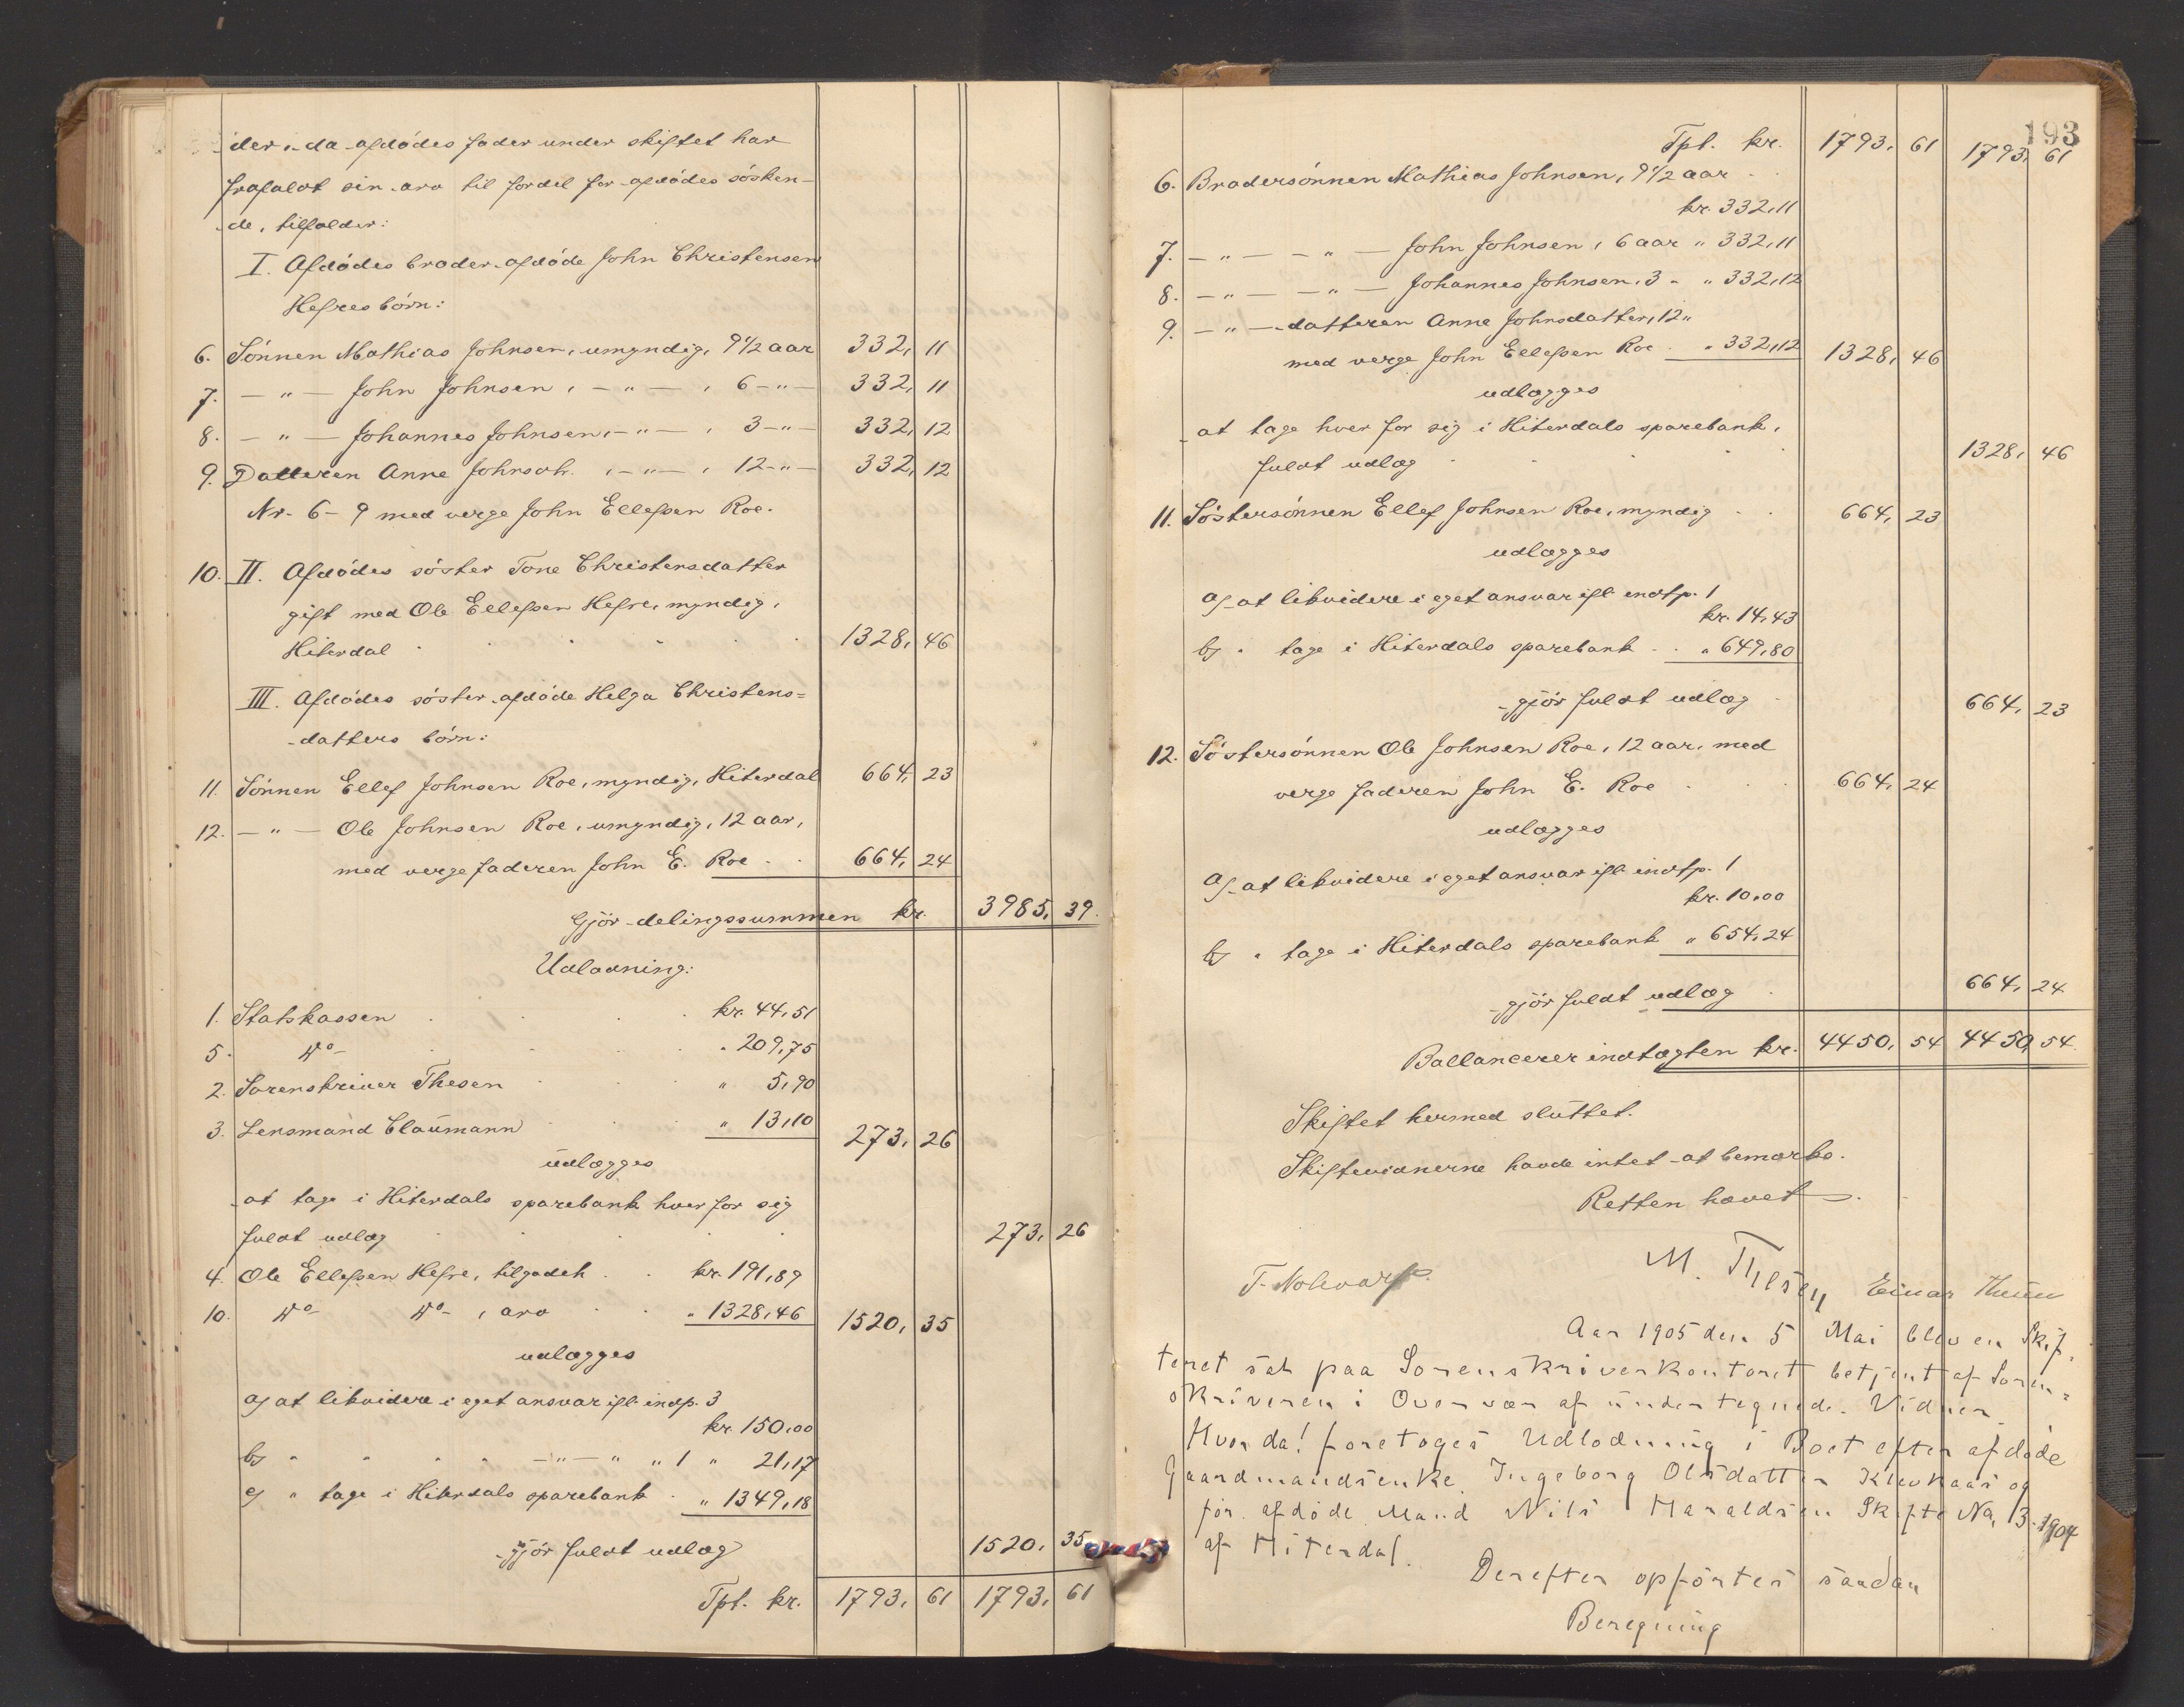 der, da afdödes fader under skiftet har
frafaldt sin arv til fordel for afdödes sösken-
de, tilfalder:
I. Afdödes broder afdöde John Christensen
Hefres börn:
6. Sönnen Mathias Johnsen, umyndig, 9 1/2 aar 332, 11
7. — " — John Johnsen, — " — , 6 — " — 332, 11
8. — " — Johannes Johnsen, — " — , 3 — " — 332, 12
9. Datteren Anne Johnsdh. , — " — , 12 — " — 332, 12
Nr. 6 – 9 med verge John Ellefsen Roe.
10. II. Afdödes söster Tone Christensdatter
gift med Ole Ellefsen Hefre, myndig,
Hiterdal 1328, 46
III. Afdödes söster afdöde Helga Christens=
datters börn:
11. Sönnen Ellef Johnsen Roe, myndig, Hiterdal 664, 23
12. — " — Ole Johnsen Roe, umyndig, 12 aar,
med verge faderen John E. Roe 664, 24
Gjör delingssummen kr. 3985, 39.
Udlodning:
1. Statskassen kr. 44,51
5. do " 209,75
2. Sorenskriver Thesen " 5,90
3. Lensmand Claumann " 13,10 273, 26
udlægges
at tage i Hiterdals sparebank hver for sig
fuldt udlæg 273, 26
4. Ole Ellefsen Hefre, tilgodeh. kr. 191,89
10. do do , arv " 1328,46 1520, 35
udlægges
a) at likvidere i eget ansvar ifl. indp. 3
kr. 150,00
b) " " " " — " — " " 1 " 21,17
c) " tage i Hiterdals sparebank " 1349,18
gjör fuldt udlæg 1520, 35
Tpt. kr. 1793, 61 1793, 61
193
Tpt. kr. 1793, 61 1793, 61
6. Brodersönnen Mathias Johnsen, 9 1/2 aar
kr. 332,11
7. — " — — " — John Johnsen, 6 aar " 332,11
8. — " — — " — Johannes Johnsen, 3 " " 332,12
9. — " — datteren Anne Johnsdatter, 12 "
med verge John Ellefsen Roe " 332,12 1328, 46
udlægges
at tage hver for sig i Hiterdals sparebank,
fuldt udlæg 1328, 46
11. Söstersönnen Ellef Johnsen Roe, myndig 664, 23
udlægges
a) at likvidere i eget ansvar ifl. indtp. 1
kr. 14,43
b) " tage i Hiterdals sparebank " 649,80
gjör fuldt udlæg 664, 23
12. Söstersönnen Ole Johnsen Roe, 12 aar, med
verge faderen John E. Roe 664, 24
udlægges
a) at likvidere i eget ansvar ifl. indtp. 1
kr. 10,00
b) " tage i Hiterdals sparebank " 654,24
gjör fuldt udlæg 664, 24
Ballancerer indtægten kr. 4450, 54 4450, 54.
Skiftet hermed sluttet.
Skiftevidnerne havde intet at bemærke.
Retten hævet
M. Thesen
Einar
Aar 1905 den 5 Mai blev en Skif=
teret sat paa Sorenskriverkontoret betjent af Soren=
skriveren i Overvær af undertegnede Vidner
Hvorda! foretoges Udlodning i Boet efter afdöde
Gaardmandsenke Ingeborg Olsdatter Klevkaas og
för afdöde Mand Nils Haraldsen Skifte No. 13. 1904
af Hiterdal.
Derefter opförtes saadan
Beregning